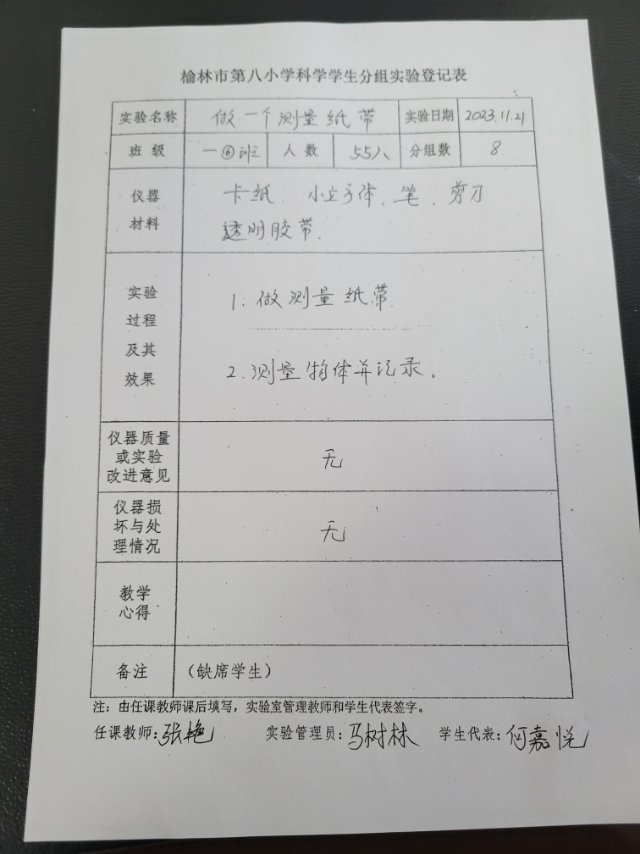 榆林市第八小学科学学生分组实验登记表
实验名称 做一个测量纸带 实验日期 2023.11.21
班 级 一⑥班 人 数 55人 分组数 8
仪器
材料
卡纸、小立方体、笔、剪刀
透明胶带
实验
过程
及其
效果
1. 做测量纸带
2. 测量物体并记录。
仪器质量
或实验
改进意见
无
仪器损
坏与处
理情况
无
教学
心得
备注 (缺席学生)
注：由任课教师课后填写，实验室管理教师和学生代表签字。
任课教师：张艳 实验管理员：马树林 学生代表：何嘉悦